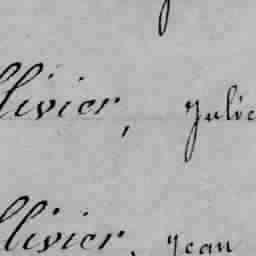 llivier, Julie
llivier, Jean